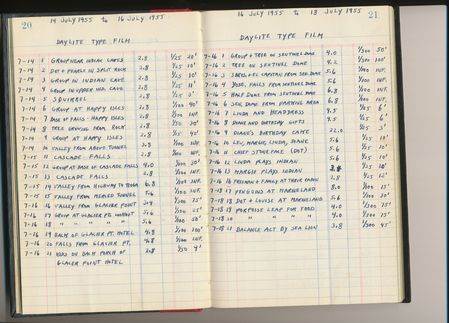 20
14 JULY 1955 to 16 JULY 1955
DAYLITE TYPE FILM
7-14 1 GROUP NEAR INDIAN CAVES 2.8 1/25 20'
7-14 2 DOT & PEARLS IN SPLIT ROCK 2.8 1/25 10'
7-14 3 GROUP IN INDIAN CAVE 2.8 1/25 10'
7-14 4 GROUP IN UPPER IND. CAVE 2.8 1/25 11'
7-14 5 SQUIRREL 2.8
7-14 6 GROUP AT HAPPY ISLES 2.8 40'
7-14 7 BASE OF FALLS - HAPPY ISLES 2.8 INF.
7-14 8 TREE GROWING FROM ROCK 2.8
7-14 9 GROUP AT HAPPY ISLES 2.8
7-14 10 VALLEY FROM ABOVE TUNNEL INF.
7-15 11 CASCADE FALLS 2.8 INF.
7-15 12 GROUP AT BASE OF CASCADE FALLS 4.0 20'
7-15 13 CASCADE FALLS 2.8 INF.
7-15 14 VALLEY FROM HIGHWAY TO TIOGA 6.8 INF.
7-15 15 VALLEY FROM MERCED TUNNEL 5.6 INF.
7-16 16 VALLEY FROM GLACIER POINT
7-16 17 GROUP AT GLACIER PT. LOOKOUT 5.6
7-16 18 " " " " 5.6
7-16 19 BACK OF GLACIER PT. HOTEL 4.8 100'
7-16 20 FALLS FROM GLACIER PT. 4.8 INF.
7-16 21 KIDS ON BACK PORCH OF GLACIER POINT HOTEL 2.8 1/50 4'
16 JULY 1955 to 18 JULY 1955
21
DAYLITE TYPE FILM
7-16 1 GROUP & TREE ON SENTINEL DOME 4.0 1/300 50'
7-16 2 TREE ON SENTINEL DOME 4.2 1/100 INF.
7-16 3 5.6 1/100 INF.
7-16 4 YOSO. FALLS FROM SENTINEL DOME 5.6 1/100 INF.
7-16 5 HALF DOME FROM SENTINEL DOME 6.8 1/100 INF.
7-16 6 SEN. DOME FROM PARKING AREA 6.8 1/100 INF.
7-16 7 LINDA AND HEADDRESS 6'
7-16 8 DIANE AND BIRTHDAY GIFTS 6'
7-16 9 DIANE'S BIRTHDAY CAKE 22.0 3'
7-16 10 LEU, MARGIE, LINDA, DIANE 5.6 10'
7-16 11 CHIEF STONEFACE (DOT) 5.6 10'
7-16 12 LINDA PLAYS INDIAN 5.6 10'
7-16 13 MARGIE PLAYS INDIAN 10'
7-16 16 FREEMAN & FAMILY AT THEIR CABIN 2.8 12'
7-18 17 PENGUINS AT MARINELAND 8.0 1/100 15'
7-18 18 DOT & LOUISE AT MARINELAND 5.6 1/300 20'
7-18 19 PORPOISE LEAP FOR FOOD 4.0 1/300 75'
7-18 20 " " " " 4.0 1/300 75'
7-18 21 BALANCE ACT BY SEA LION 3.8 1/300 45'